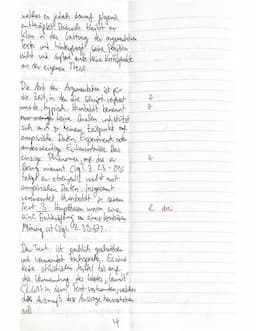 welches er jedoch darauf allgemein
entkräftet. Dadurch bleibt er
klar in der Gattung des argumentativen
Texts und hinterfragt seine Position
nicht und äußert auch keine Kritikpunkte
an der eigenen These.
Die Art der Argumentation ist für
die Zeit, in der die Schrift verfasst
wurde, typisch. Humboldt benennt
keine Quellen und stützt
sich auch zu keinem Zeitpunkt auf
empirische Daten, Experimente oder
Erkenntnisse. Das
einzige Phänomen, auf das er
Bezug nimmt (vgl. Z. 23-28)
belegt er ebenfalls nicht mit
empirischen Daten. Insgesamt
verwendet Humboldt in seinem
Text 3 Hypothesen sowie eine
eine Entkräftung von einer konträren
Meinung ist (vgl. Z. 33-37).
Der Text ist sachlich geschrieben
und verwendet Fachsprache. Es sind
keine stilistischen Mittel bis auf
die Verwendung des Wortes
in dem Text vorhanden, welches
dem Ausdruck der Aussage hervorheben
soll
4
Z
Z
A
R drei